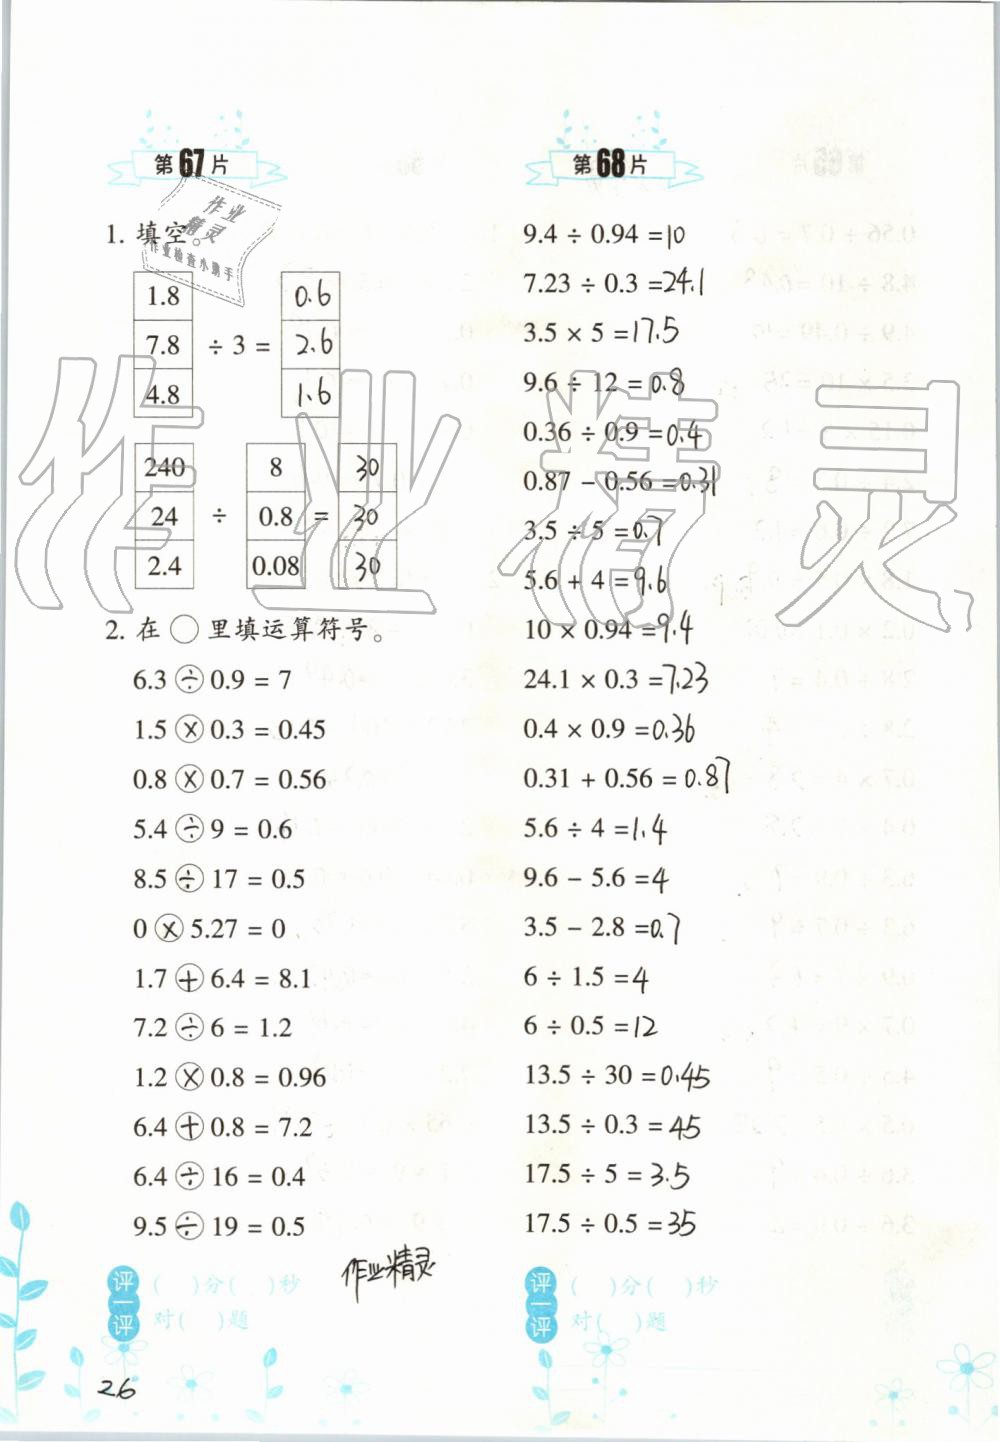 第67片
1. 填空。
作业
精灵
作业检查小助手
1.8 0.6
7.8 ÷ 3 = 2.6
4.8 1.6
240 8 30
24 ÷ 0.8 = 30
2.4 0.08 30
2. 在○里填运算符号。
6.3 ÷ 0.9 = 7
1.5 × 0.3 = 0.45
0.8 × 0.7 = 0.56
5.4 ÷ 9 = 0.6
8.5 ÷ 17 = 0.5
0 × 5.27 = 0
1.7 + 6.4 = 8.1
7.2 ÷ 6 = 1.2
1.2 × 0.8 = 0.96
6.4 + 0.8 = 7.2
6.4 ÷ 16 = 0.4
9.5 ÷ 19 = 0.5
作业精灵
评一评
( )分( )秒
对( )题
26
第68片
9.4 ÷ 0.94 = 10
7.23 ÷ 0.3 = 24.1
3.5 × 5 = 17.5
9.6 ÷ 12 = 0.8
0.36 ÷ 0.9 = 0.4
0.87 − 0.56 = 0.31
3.5 ÷ 5 = 0.7
5.6 + 4 = 9.6
10 × 0.94 = 9.4
24.1 × 0.3 = 7.23
0.4 × 0.9 = 0.36
0.31 + 0.56 = 0.87
5.6 ÷ 4 = 1.4
9.6 − 5.6 = 4
3.5 − 2.8 = 0.7
6 ÷ 1.5 = 4
6 ÷ 0.5 = 12
13.5 ÷ 30 = 0.45
13.5 ÷ 0.3 = 45
17.5 ÷ 5 = 3.5
17.5 ÷ 0.5 = 35
评一评
( )分( )秒
对( )题
作业精灵